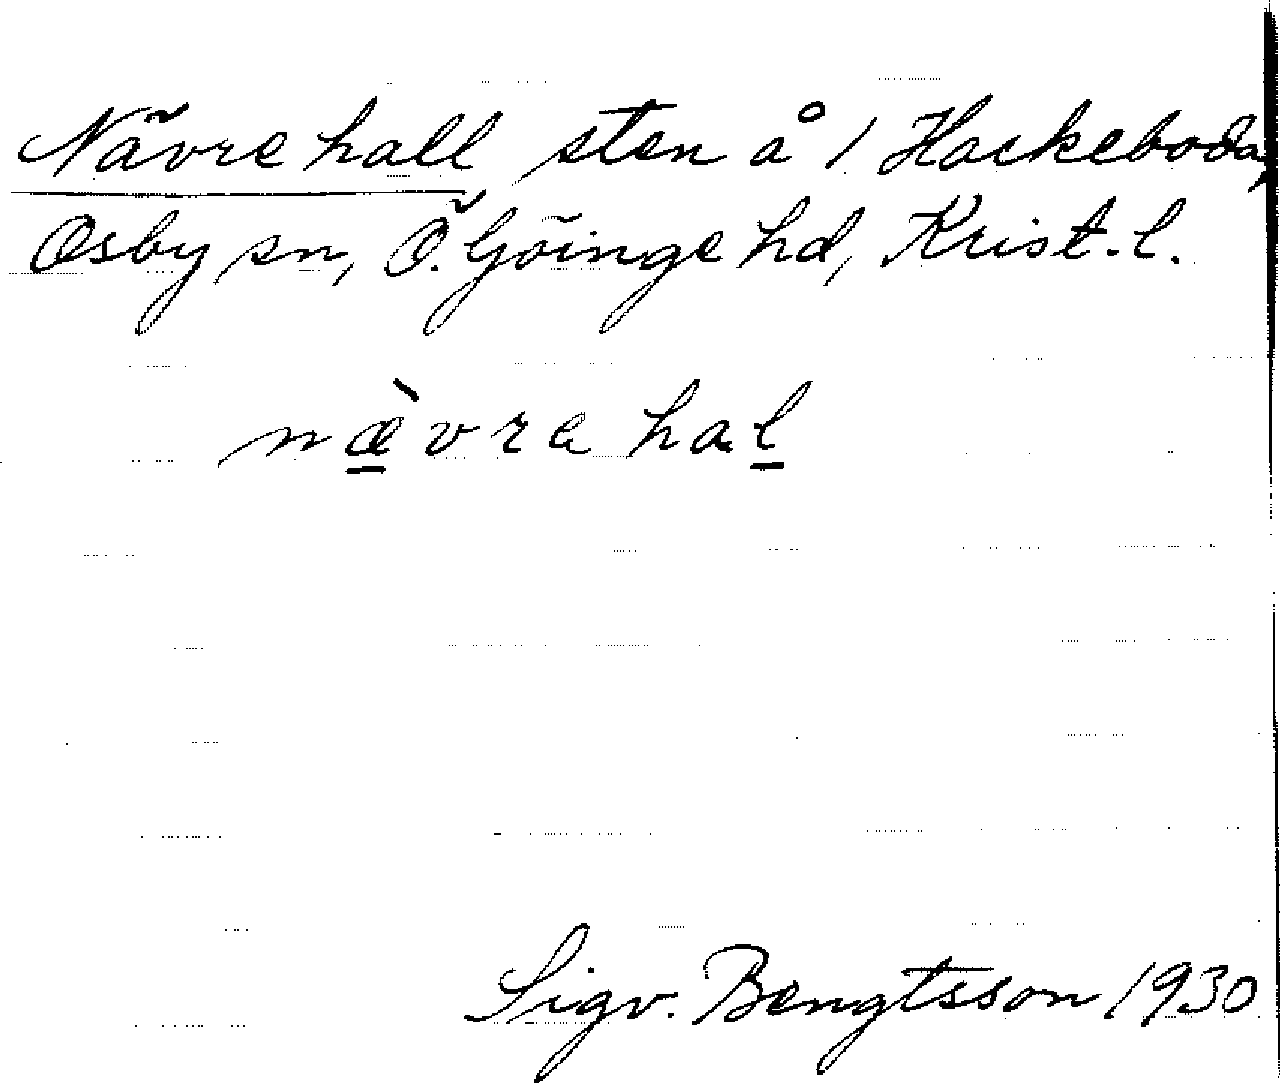 Nävrehall sten å 1 Hackeboda,
Osby sn, Ö. Göinge hd, Krist. l.
næ̀vrehal
Sigv. Bengtsson 1930